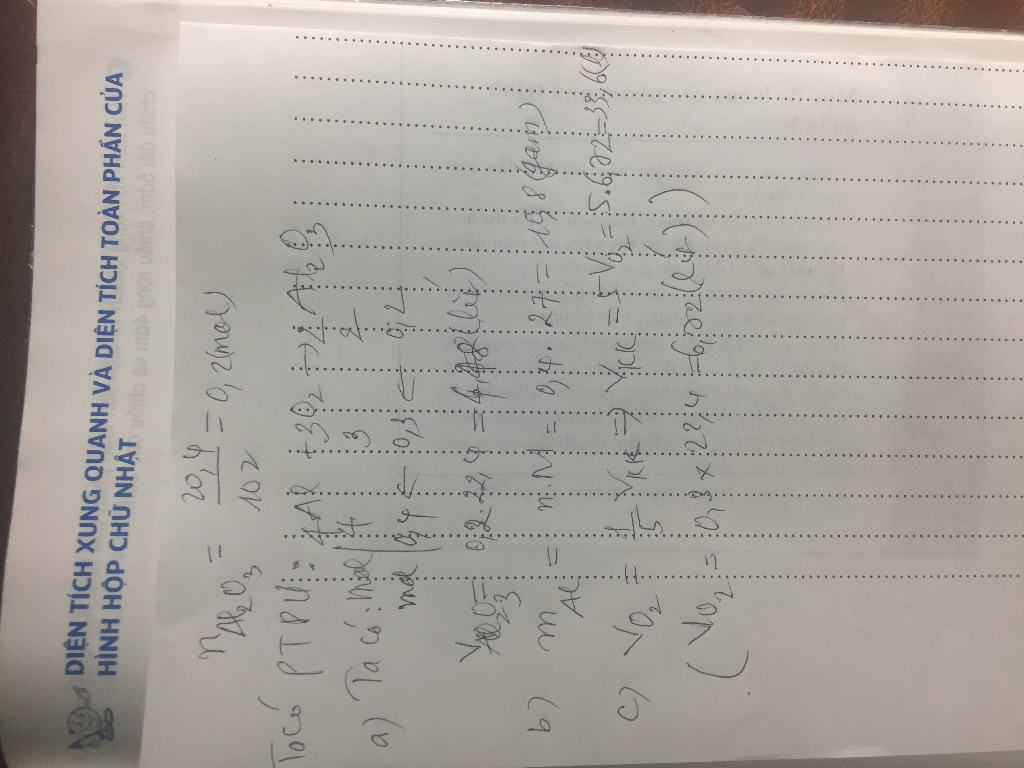 DIỆN TÍCH XUNG QUANH VÀ DIỆN TÍCH TOÀN PHẦN CỦA
HÌNH HỘP CHỮ NHẬT
nAl2O3 = 20,4/102 = 0,2(mol)
Ta có PTPỨ: 4Al + 3O2 → 2Al2O3
a) Ta có: mol 4 3 2
mol 0,4 ← 0,3 ← 0,2
VAl2O3 = 0,2.22,4 = 4,48(lít)
b) mAl = n.M = 0,4.27 = 10,8(gam)
c) VO2 = 1/5 VKK => VKK = 5.VO2 = 5.6,72 = 33,6(l)
(VO2 = 0,3 x 22,4 = 6,72(lít))